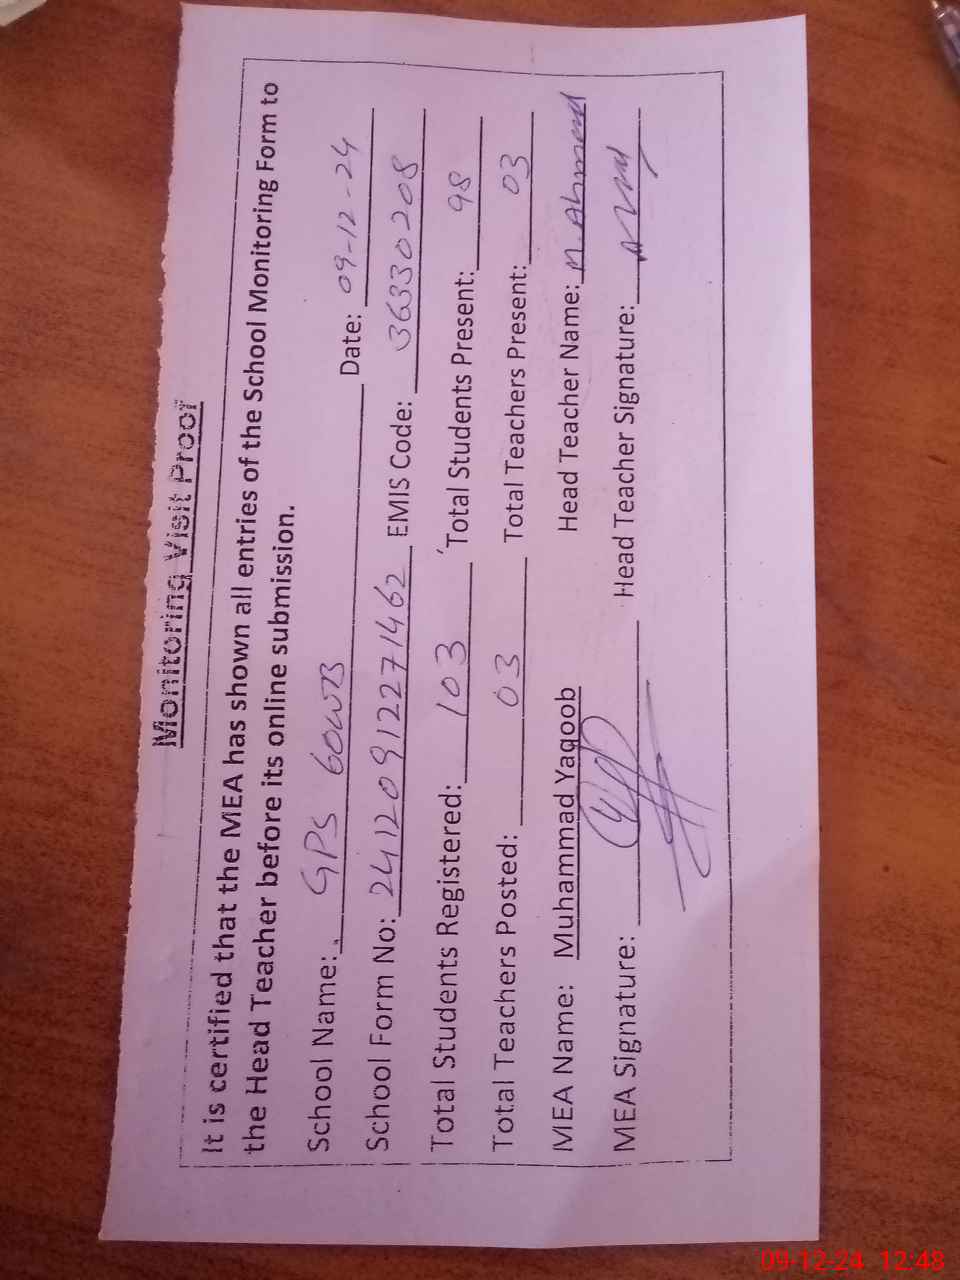 Monitoring Visit Proof
It is certified that the MEA has shown all entries of the School Monitoring Form to
the Head Teacher before its online submission.
School Name: GPS 60WB Date: 09-12-24
School Form No: 24120912271462 EMIS Code: 36330208
Total Students Registered: 103 Total Students Present: 98
Total Teachers Posted: 03 Total Teachers Present: 03
MEA Name: Muhammad Yaqoob Head Teacher Name: M. Ahmad
MEA Signature: Head Teacher Signature:
09-12-24 12:48